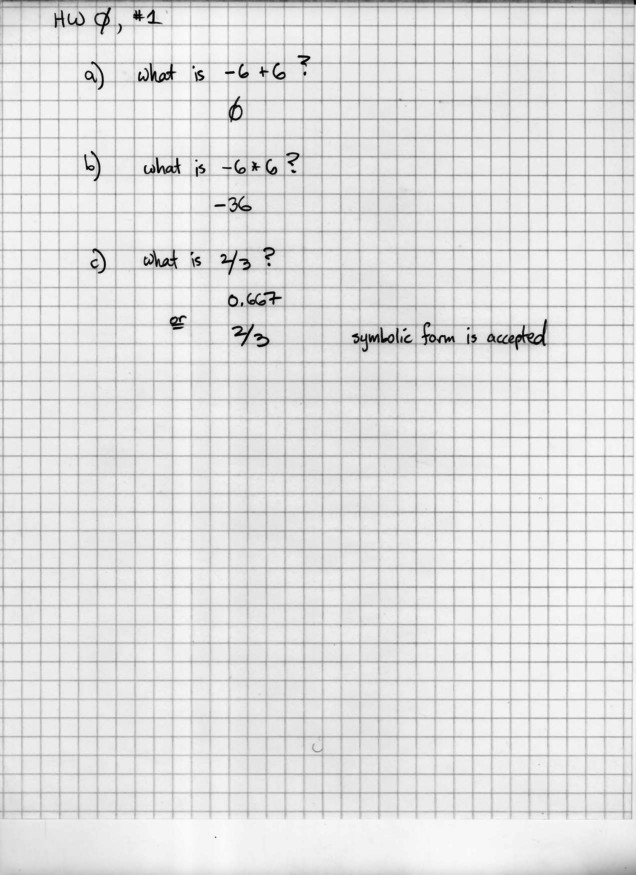 HW Ø, #1
a) what is -6 +6 ?
Ø
b) what is -6 * 6 ?
-36
c) what is 2/3 ?
0.667
or
2/3 symbolic form is accepted